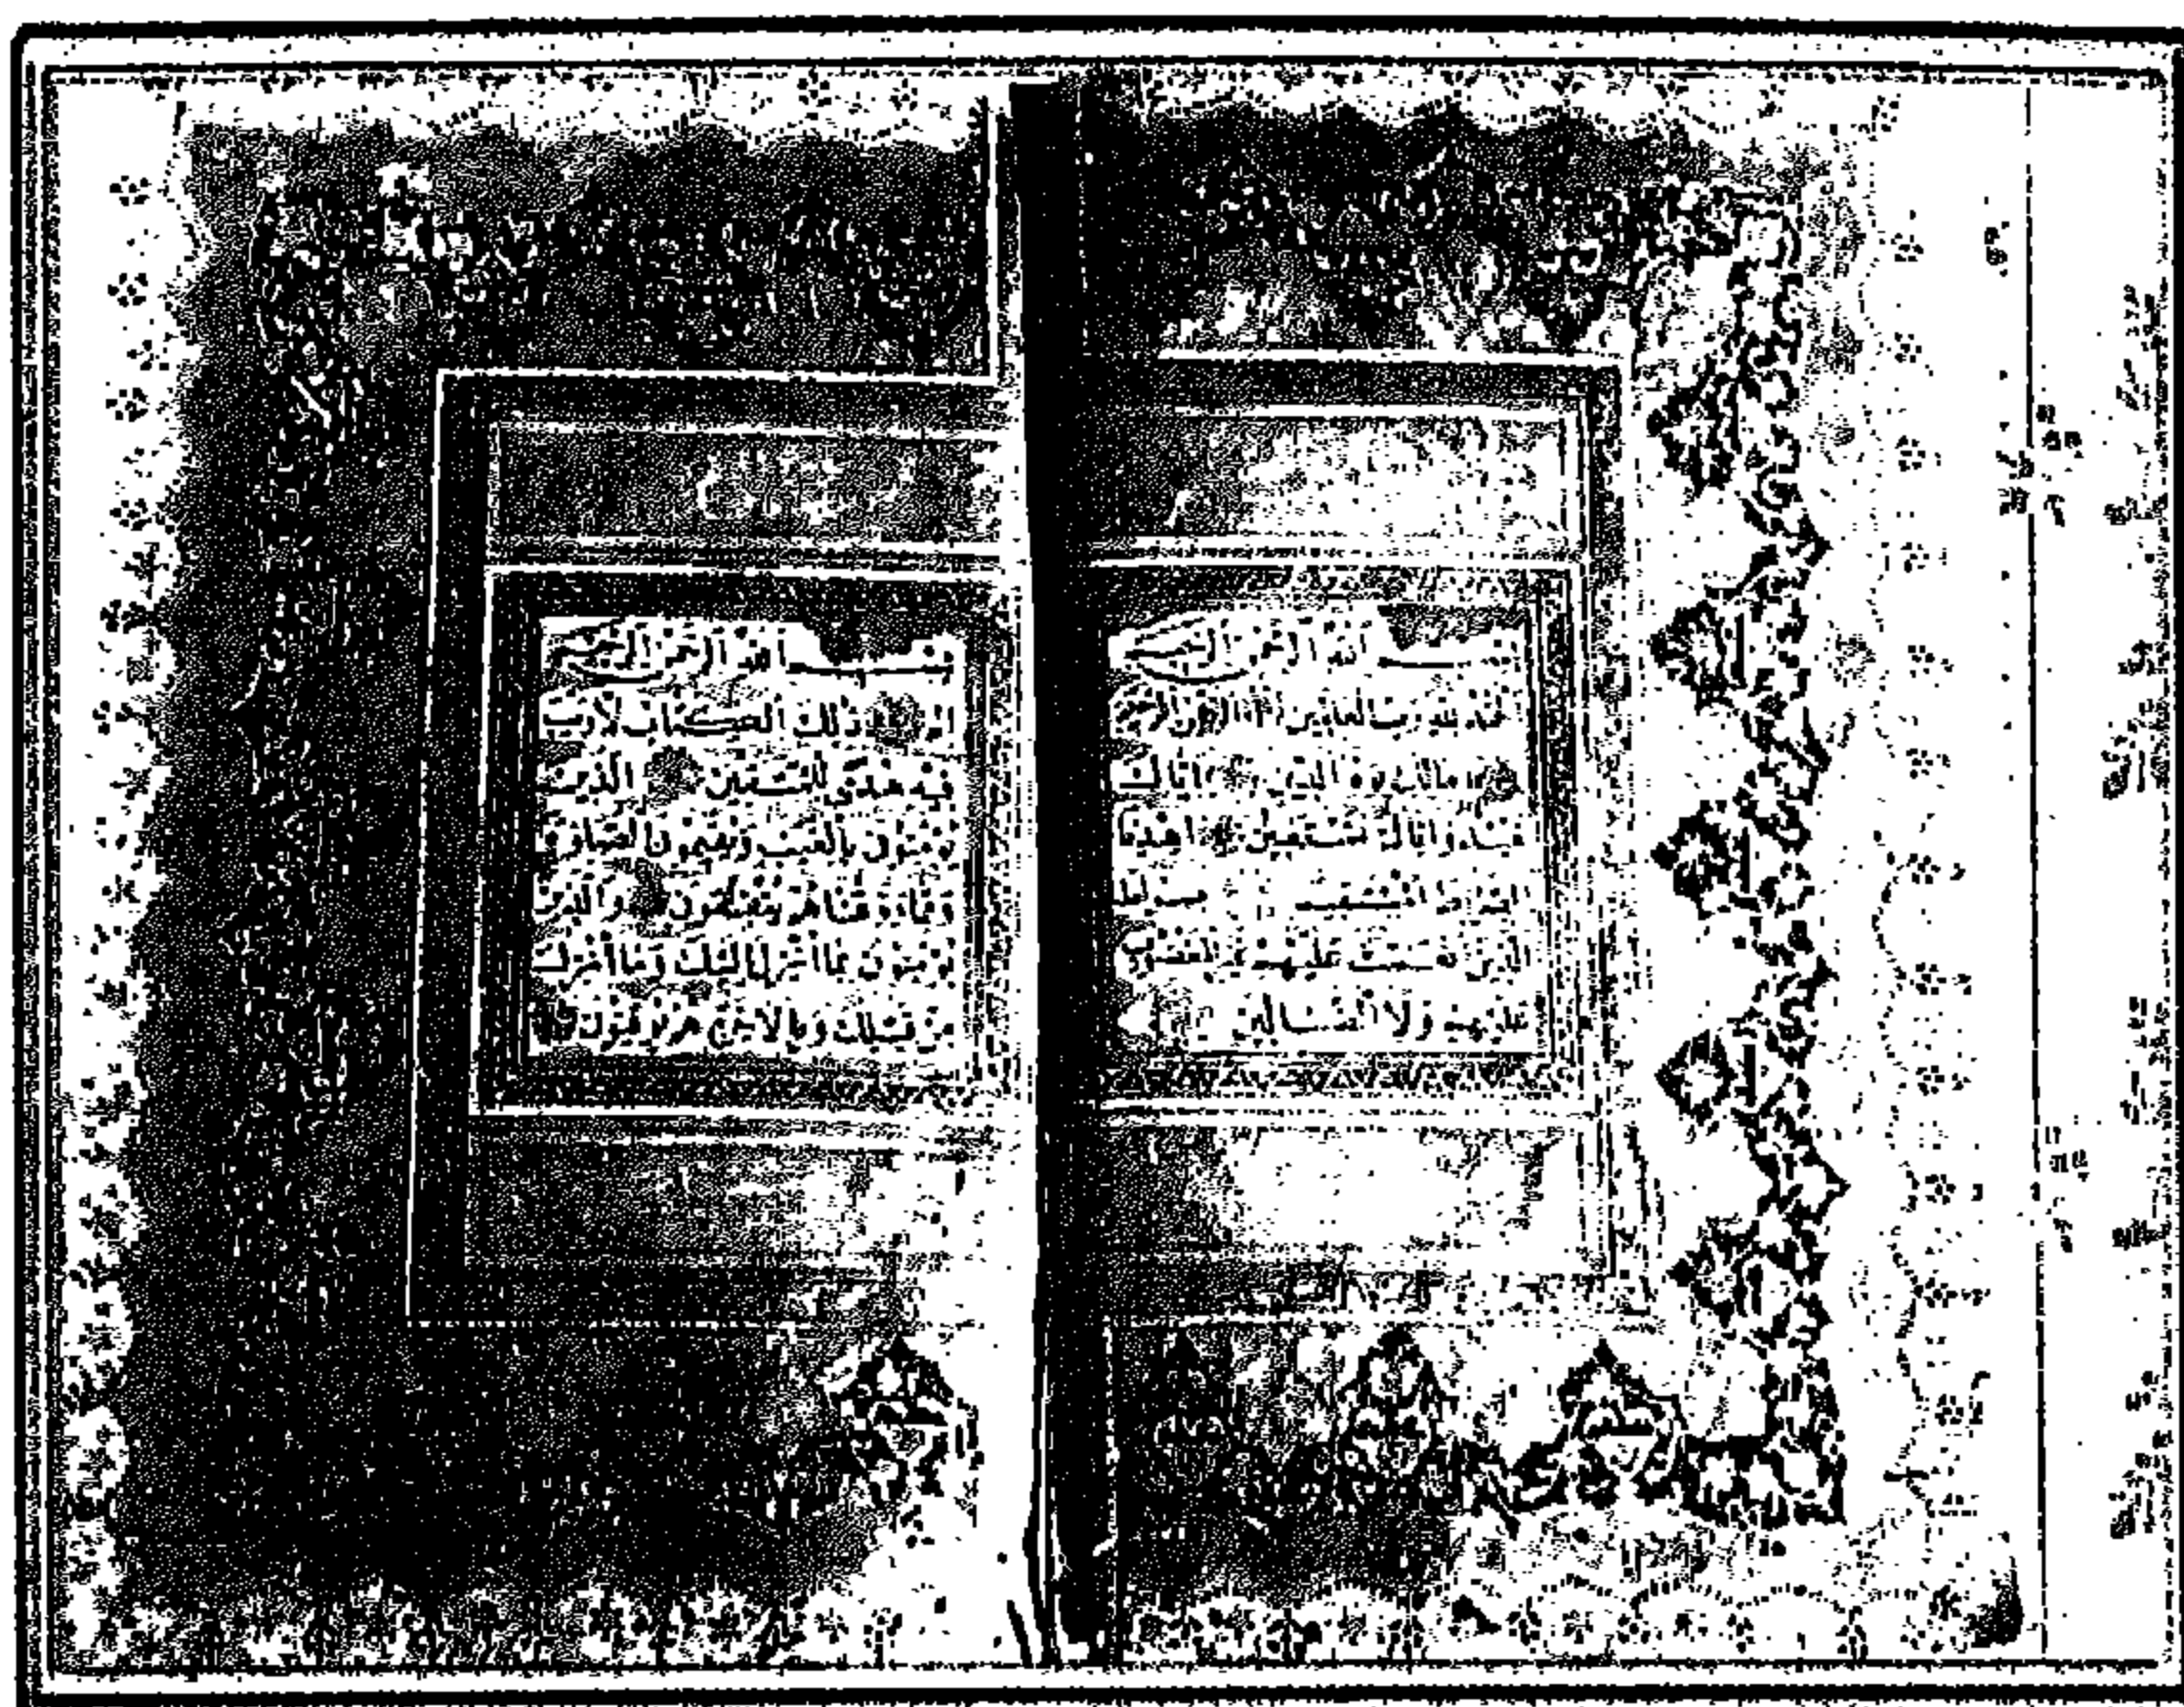 بسم الله الرحمن الرحيم
الحمد لله رب العالمين الرحمن الرحيم
مالك يوم الدين اياك
نعبد واياك نستعين اهدنا
الصراط المستقيم صراط
الذين انعمت عليهم غير المغضوب
عليهم ولا الضالين
بسم الله الرحمن الرحيم
الم ذلك الكتاب لا ريب
فيه هدى للمتقين الذين
يؤمنون بالغيب ويقيمون الصلوة
ومما رزقناهم ينفقون والذين
يؤمنون بما انزل اليك وما انزل
من قبلك وبالاخرة هم يوقنون